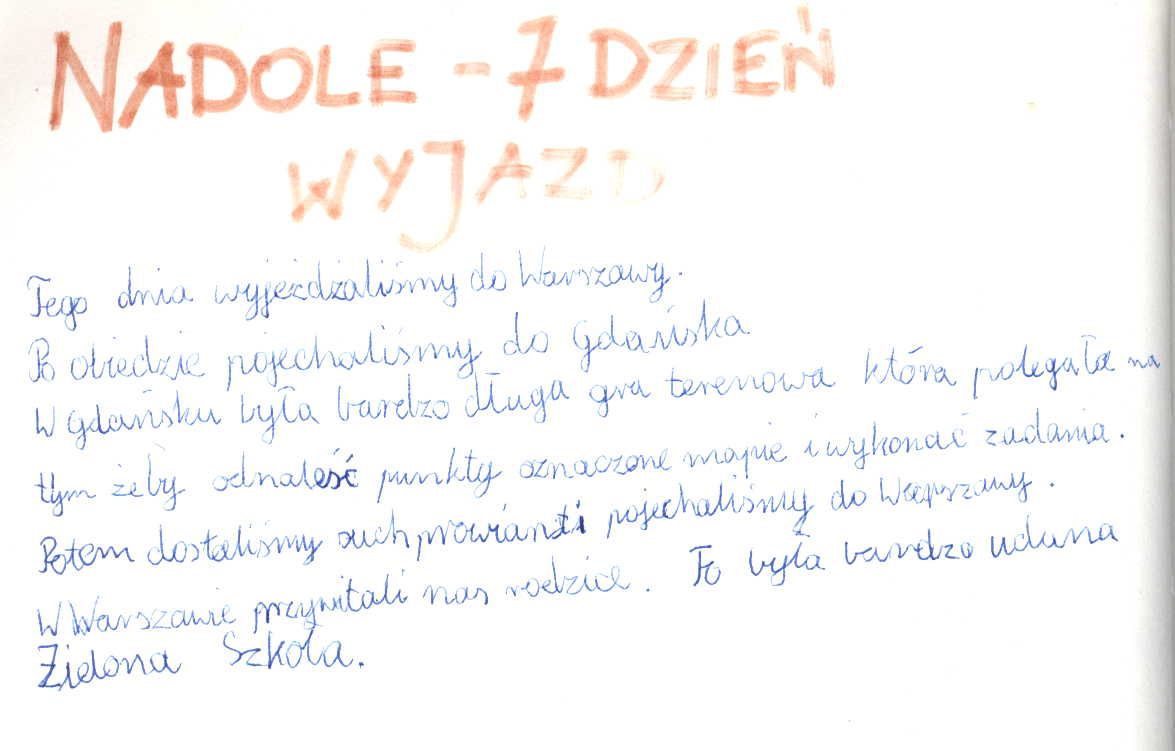 NADOLE - 7 DZIEŃ
WYJAZD
Tego dnia wyjeżdżaliśmy do Warszawy.
Po obiedzie pojechaliśmy do Gdańska
W Gdańsku była bardzo długa gra terenowa która polegała na
tym żeby odnaleść punkty oznaczone mapie i wykonać zadania.
Potem dostaliśmy such prowiant i pojechaliśmy do Warszawy.
W Warszawie przywitali nas rodzice. To była bardzo udana
Zielona Szkoła.